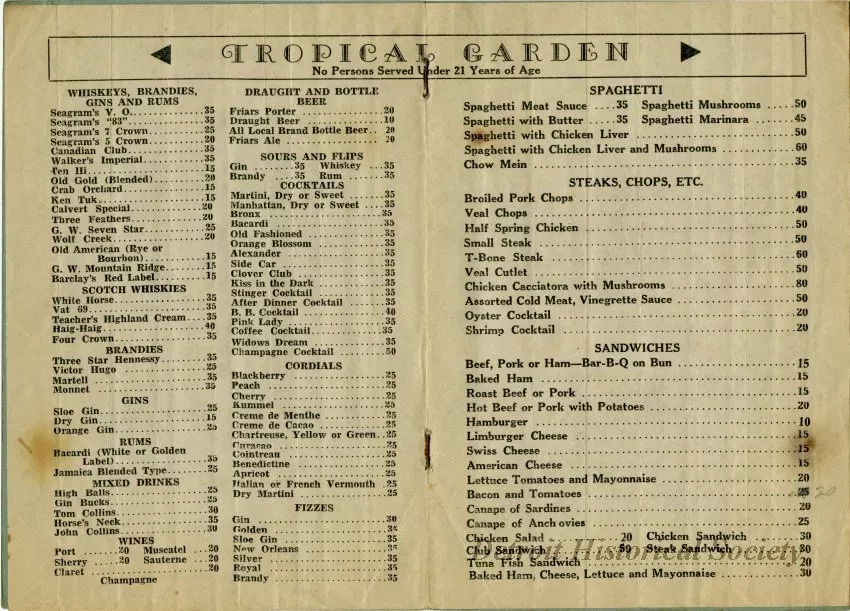 TROPICAL GARDEN
No Persons Served Under 21 Years of Age
WHISKEYS, BRANDIES,
GINS AND RUMS
Seagram's V. O. 35
Seagram's "83" 35
Seagram's 7 Crown 25
Seagram's 5 Crown 20
Canadian Club 35
Walker's Imperial 35
Ten Hi 15
Old Gold (Blended) 20
Crab Orchard 15
Ken Tuk 15
Calvert Special 20
Three Feathers 20
G. W. Seven Star 25
Wolf Creek 20
Old American (Rye or
Bourbon) 15
G. W. Mountain Ridge 15
Barclay's Red Label 15
SCOTCH WHISKIES
White Horse 35
Vat 69 35
Teacher's Highland Cream 35
Haig-Haig 40
Four Crown 35
BRANDIES
Three Star Hennessy 35
Victor Hugo 25
Martell 35
Monnet 35
GINS
Sloe Gin 25
Dry Gin 15
Orange Gin 25
RUMS
Bacardi (White or Golden
Label) 35
Jamaica Blended Type 25
MIXED DRINKS
High Balls 25
Gin Bucks 25
Tom Collins 30
Horse's Neck 35
John Collins 30
WINES
Port 20 Muscatel 20
Sherry 20 Sauterne 20
Claret 20
Champagne
DRAUGHT AND BOTTLE
BEER
Friars Porter 20
Draught Beer 10
All Local Brand Bottle Beer 20
Friars Ale 20
SOURS AND FLIPS
Gin 35 Whiskey 35
Brandy 35 Rum 35
COCKTAILS
Martini, Dry or Sweet 35
Manhattan, Dry or Sweet 35
Bronx 35
Bacardi 35
Old Fashioned 35
Orange Blossom 35
Alexander 35
Side Car 35
Clover Club 35
Kiss in the Dark 35
Stinger Cocktail 35
After Dinner Cocktail 35
B. B. Cocktail 40
Pink Lady 35
Coffee Cocktail 35
Widows Dream 35
Champagne Cocktail 50
CORDIALS
Blackberry 25
Peach 25
Cherry 25
Kummel 25
Creme de Menthe 25
Creme de Cacao 25
Chartreuse, Yellow or Green 25
Curacao 25
Cointreau 25
Benedictine 25
Apricot 25
Italian or French Vermouth 25
Dry Martini 25
FIZZES
Gin 30
Golden 35
Sloe Gin 35
New Orleans 35
Silver 35
Royal 35
Brandy 35
SPAGHETTI
Spaghetti Meat Sauce 35 Spaghetti Mushrooms 50
Spaghetti with Butter 35 Spaghetti Marinara 45
Spaghetti with Chicken Liver 50
Spaghetti with Chicken Liver and Mushrooms 60
Chow Mein 35
STEAKS, CHOPS, ETC.
Broiled Pork Chops 40
Veal Chops 40
Half Spring Chicken 50
Small Steak 50
T-Bone Steak 60
Veal Cutlet 50
Chicken Cacciatora with Mushrooms 80
Assorted Cold Meat, Vinegrette Sauce 50
Oyster Cocktail 20
Shrimp Cocktail 20
SANDWICHES
Beef, Pork or Ham—Bar-B-Q on Bun 15
Baked Ham 15
Roast Beef or Pork 15
Hot Beef or Pork with Potatoes 20
Hamburger 10
Limburger Cheese 15
Swiss Cheese 15
American Cheese 15
Lettuce Tomatoes and Mayonnaise 20
Bacon and Tomatoes 25
20
Canape of Sardines 20
Canape of Anchovies 25
Chicken Salad 20 Chicken Sandwich 30
Club Sandwich 50 Steak Sandwich
Tuna Fish Sandwich 20
Baked Ham, Cheese, Lettuce and Mayonnaise 30
Detroit Historical Society